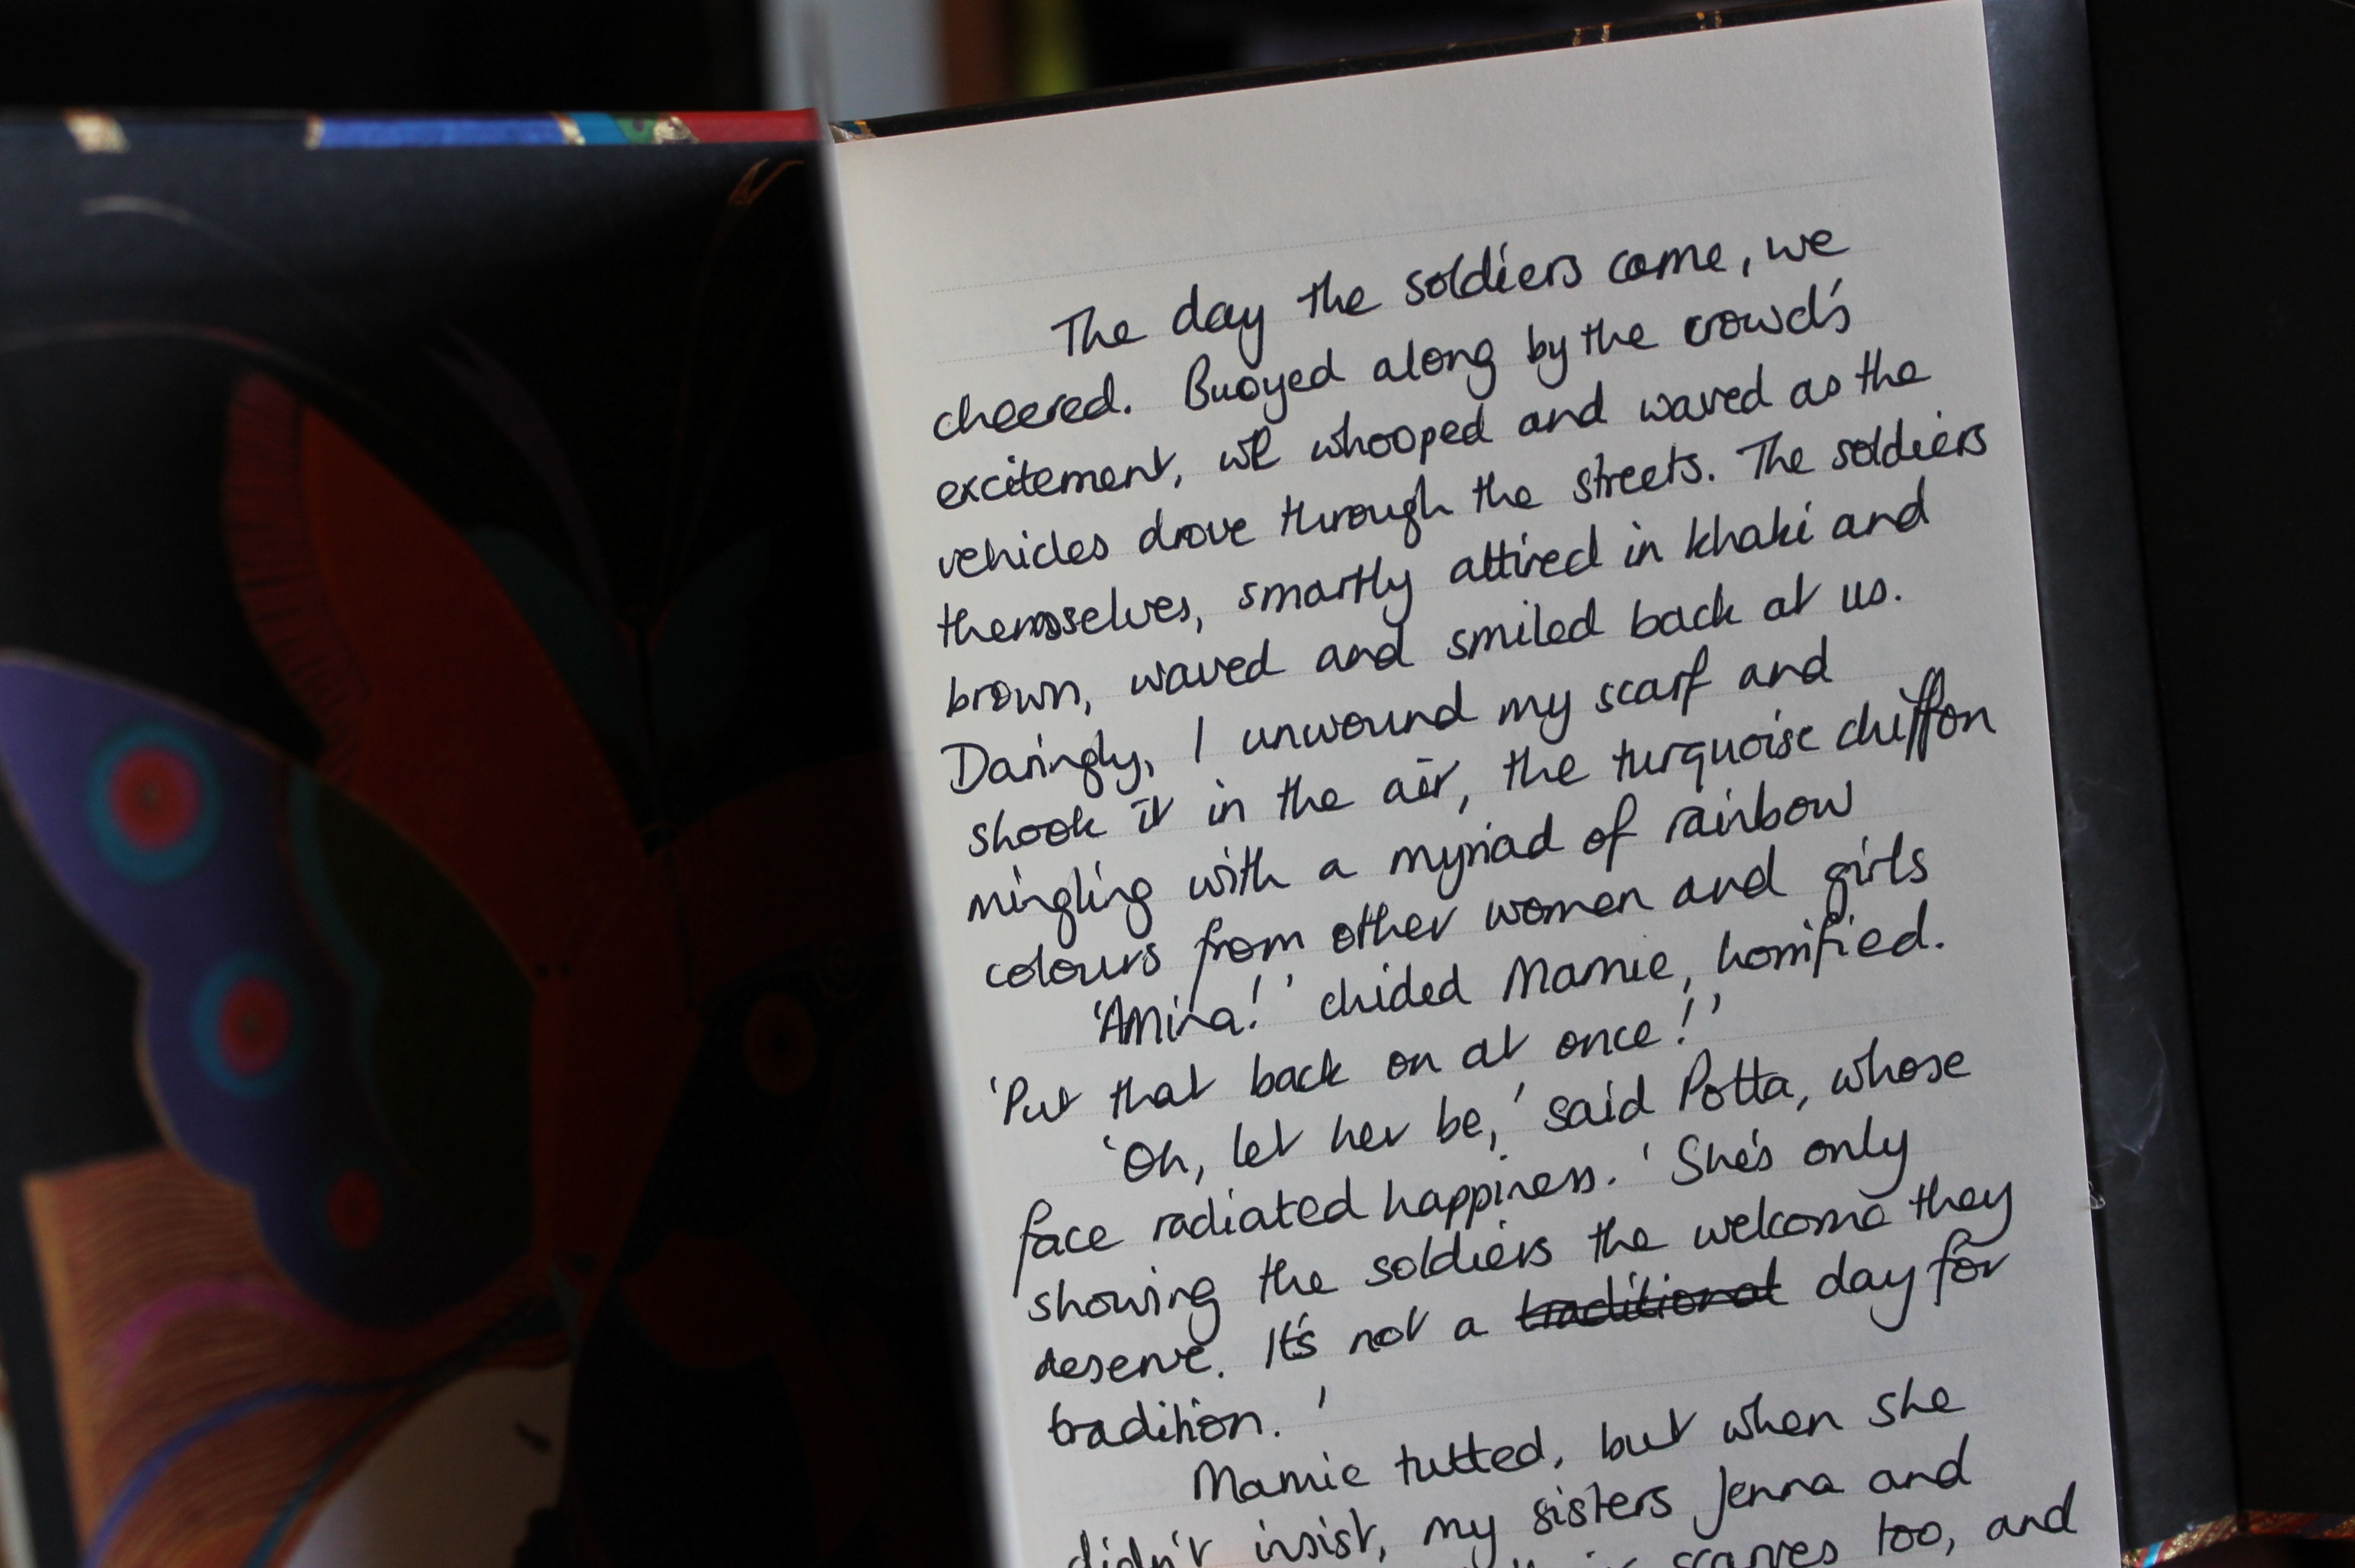 The day the soldiers came, we
cheered. Buoyed along by the crowd's
excitement, we whooped and waved as the
vehicles drove through the streets. The soldiers
themselves, smartly attired in khaki and
brown, waved and smiled back at us.
Daringly, I unwound my scarf and
shook it in the air, the turquoise chiffon
mingling with a myriad of rainbow
colours from other women and girls
'Amira!' chided Mamie, horrified.
'Put that back on at once!'
'Oh, let her be,' said Potta, whose
face radiated happiness. 'She's only
showing the soldiers the welcome they
deserve. It's not a traditional day for
tradition.'
Mamie tutted, but when she
didn't insist, my sisters Jenna and
scarves too, and